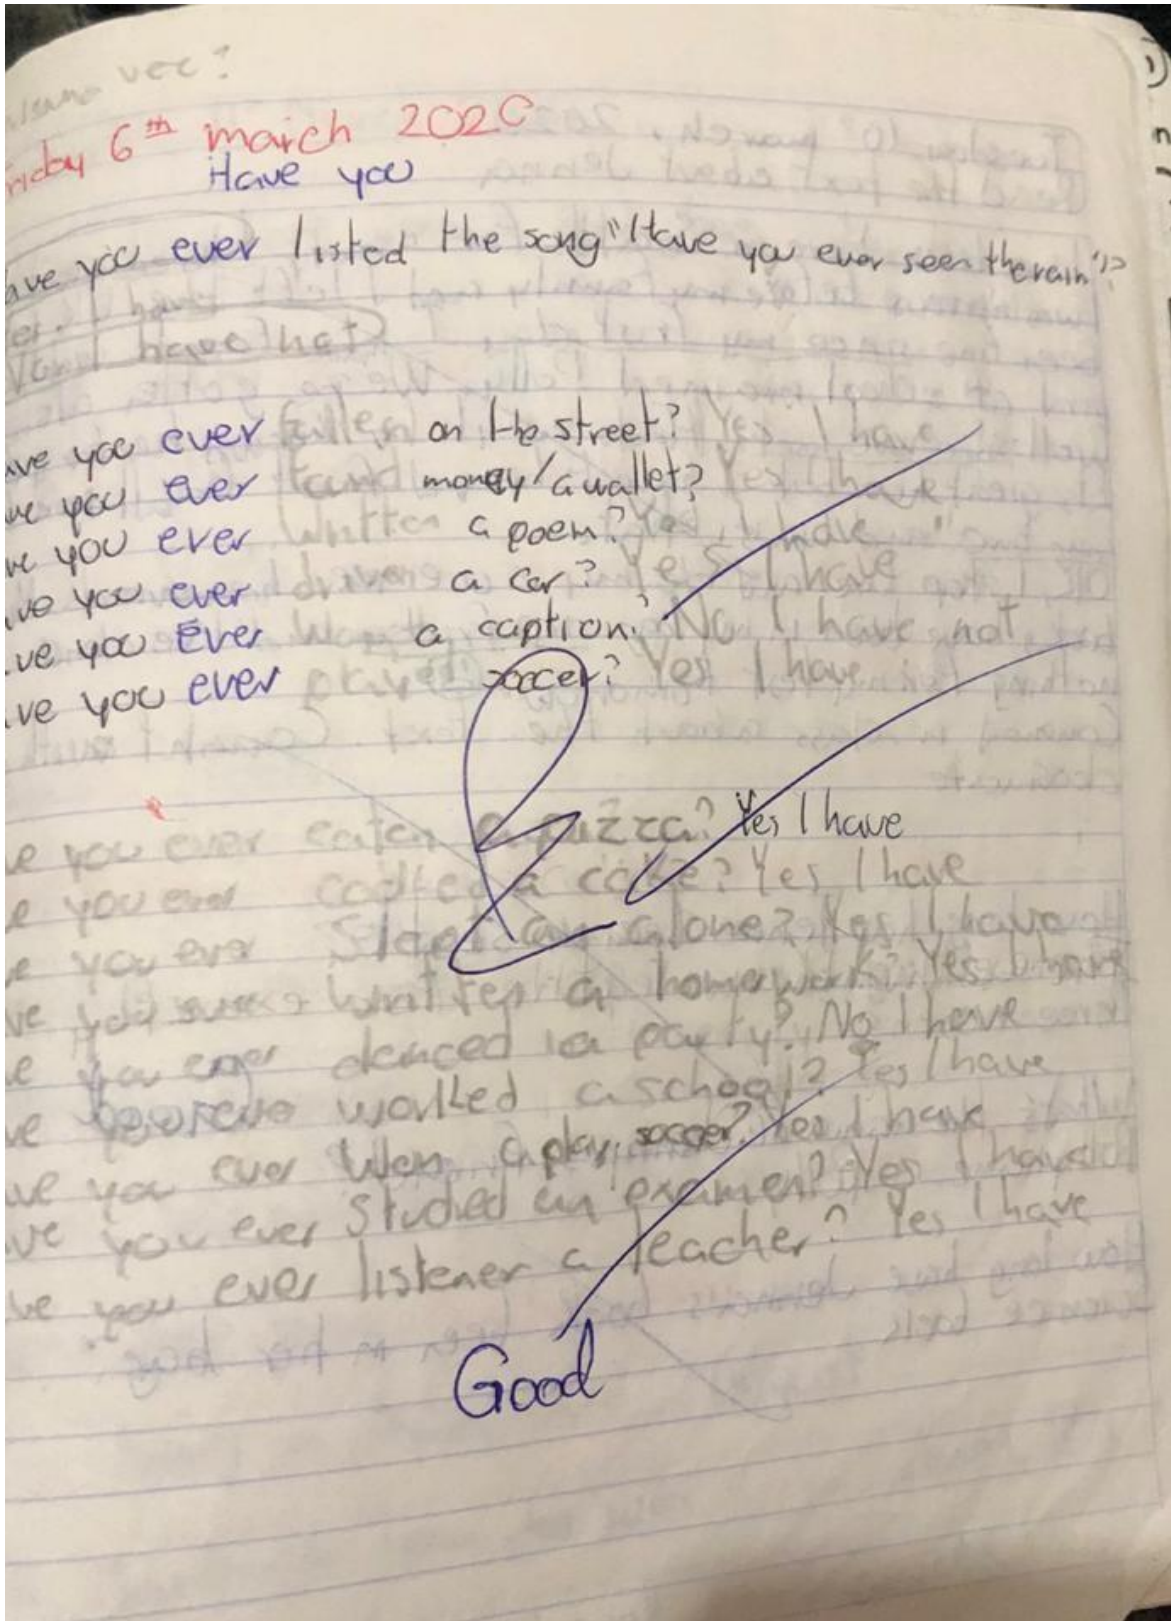 vez?
riday 6th march 2020
Have you
ave you ever listed the song "Have you ever seen the rain"?
Yes. I
have not
ave you ever fallen on the street? Yes I have
ave you ever found money/a wallet? Yes I have
ve you ever written a poem? Yes, I have
ave you ever driven a car? Yes I have
ave you Ever a caption? No I have not
ave you ever played soccer? Yes I have
e you ever eaten a pizza? Yes I have
e you ever a cake? Yes I have
e you ever Slept alone? Yes I have
ve you a homework? Yes I have
e you ever danced a party? No I have
ve worked a school? Yes I have
ve you ever Won a play soccer? Yes I have
ve you ever Studied an examen? Yes I have
ve you ever listener a teacher? Yes I have
Good